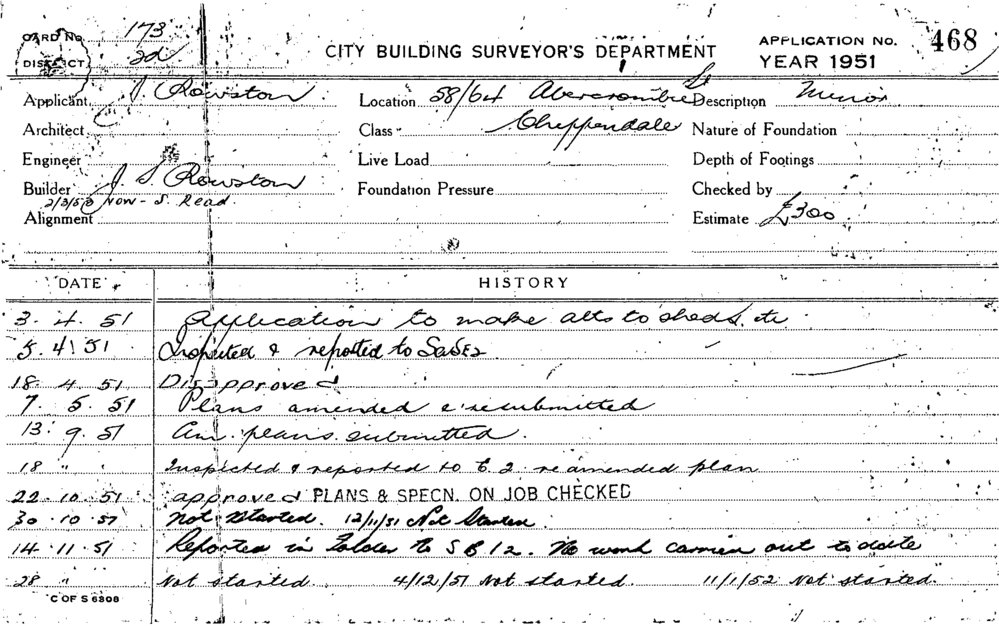 CARD No. 173
DISTRICT 2d
CITY BUILDING SURVEYOR'S DEPARTMENT
APPLICATION No. 468
YEAR 1951
Applicant J. Rowston
Location 58/64 Abercrombie St
Description Minor
Architect
Class Chippendale
Nature of Foundation
Engineer
Live Load
Depth of Footings
Builder J. S. Rowston
Foundation Pressure
Checked by
2/3/53 Now - S. Read
Alignment
Estimate £300
DATE HISTORY
3. 4. 51 Application to make alts to sheds. etc
5. 4. 51 Inspected & reported to
18. 4. 51 Disapproved
7. 5. 51 Plans amended & resubmitted
13. 9. 51 Am. plans submitted.
18 " " Inspected & reported to E.2. re amended plan
22. 10. 51 approved PLANS & SPECN. ON JOB CHECKED
30. 10. 51 Not started. 12/11/51 Not Started
14. 11. 51 Reported in folder to SB/2. No work carried out to date
28 " Not started. 4/12/51 Not started. 11/1/52 Not started.
C OF S 6808